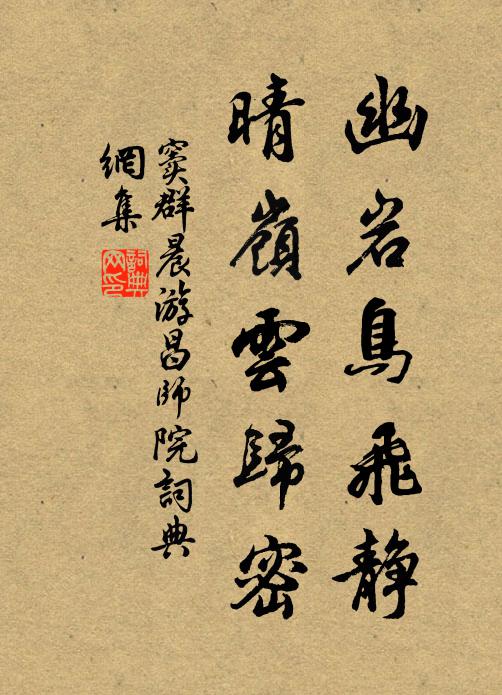 幽岩鳥飛静
晴嶺雲歸密
窦群晨游昌師院詞典
網集
詞典网印